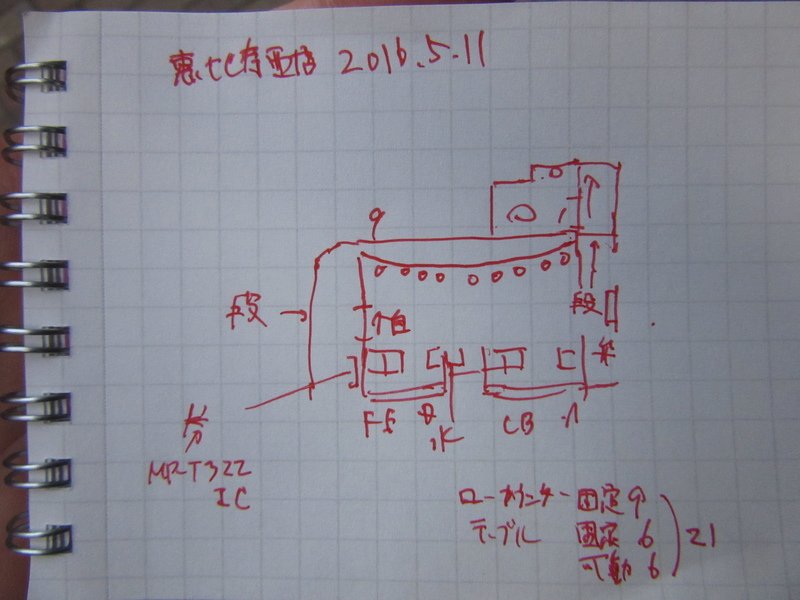 恵比寿西店 2016.5.11
9
段→
↑自
段
券
MRT322
IC
FE
水
CB
ローカウンター 固定 9
テーブル 固定 6
可動 6
21